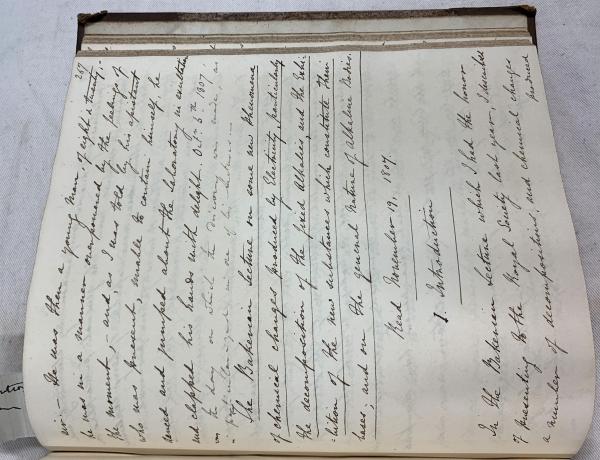 267
air:— He was then a young man, of eight & twenty,—
he was in a manner overpowered by the feelings of
the moment,— and, as I was told by his assistant
who was present, unable to contain himself, he
danced and jumped about the laboratory in exultation
and clapped his hands with delight. Octr. 6th. 1807,
the day on which the discovery was made, is
in one of his
The Bakerian Lecture on some new Phenomena
of chemical changes produced by Electricity, particularly
the decomposition of the fixed Alkalies, and the Exhi-
-bition of the new substances which constitute their
bases; and on the general Nature of Alkaline Bodies.
Read November 19, 1807.
I. Introduction
In the Bakerian Lecture which I had the honor
of presenting to the Royal Society last year, I described
a number of decompositions, and chemical changes
produced